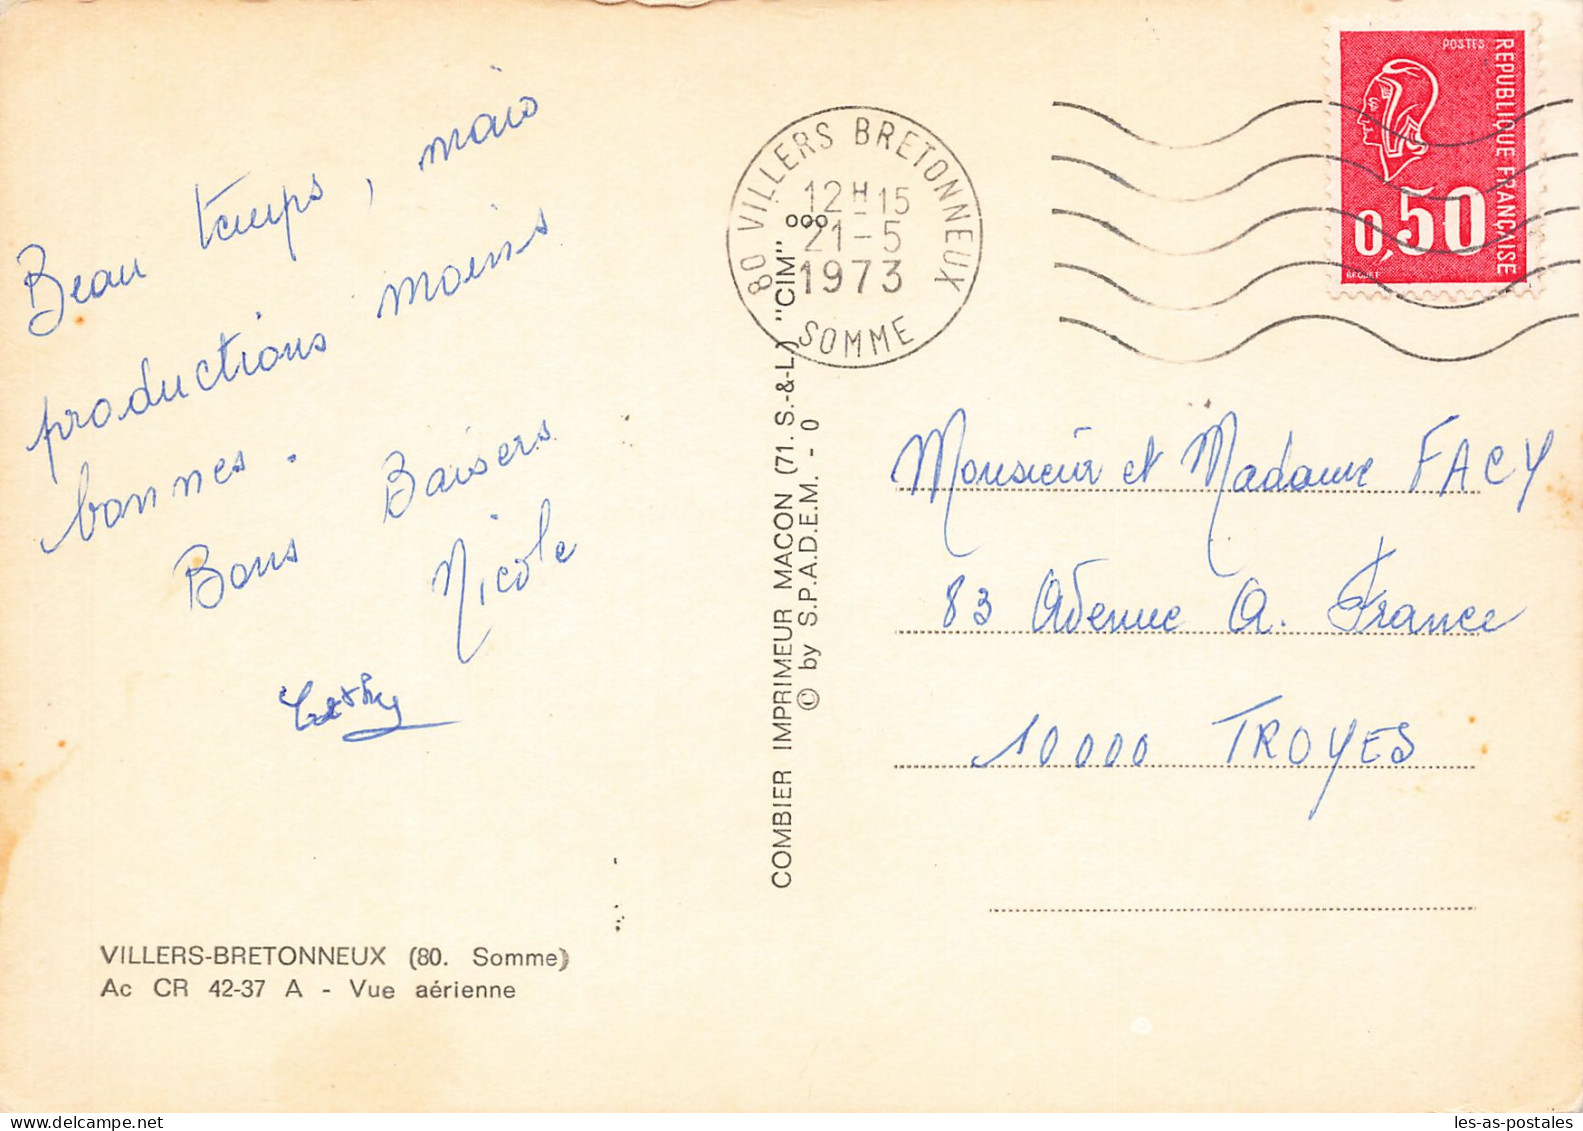 Beau temps, mais
productions moins
bonnes.
Bons Baisers
Nicole
Cathy
VILLERS-BRETONNEUX (80. Somme)
Ac CR 42-37 A - Vue aérienne
COMBIER IMPRIMEUR MACON (71. S.-&-L.) "CIM" °°°
© by S.P.A.D.E.M. - 0
80 VILLERS BRETONNEUX
12H15
21-5
1973
SOMME
POSTES
REPUBLIQUE FRANÇAISE
0,50
BEQUET
Monsieur et Madame FACY
83 Avenue A. France
10000 TROYES
les-as-postales
© delcampe.net